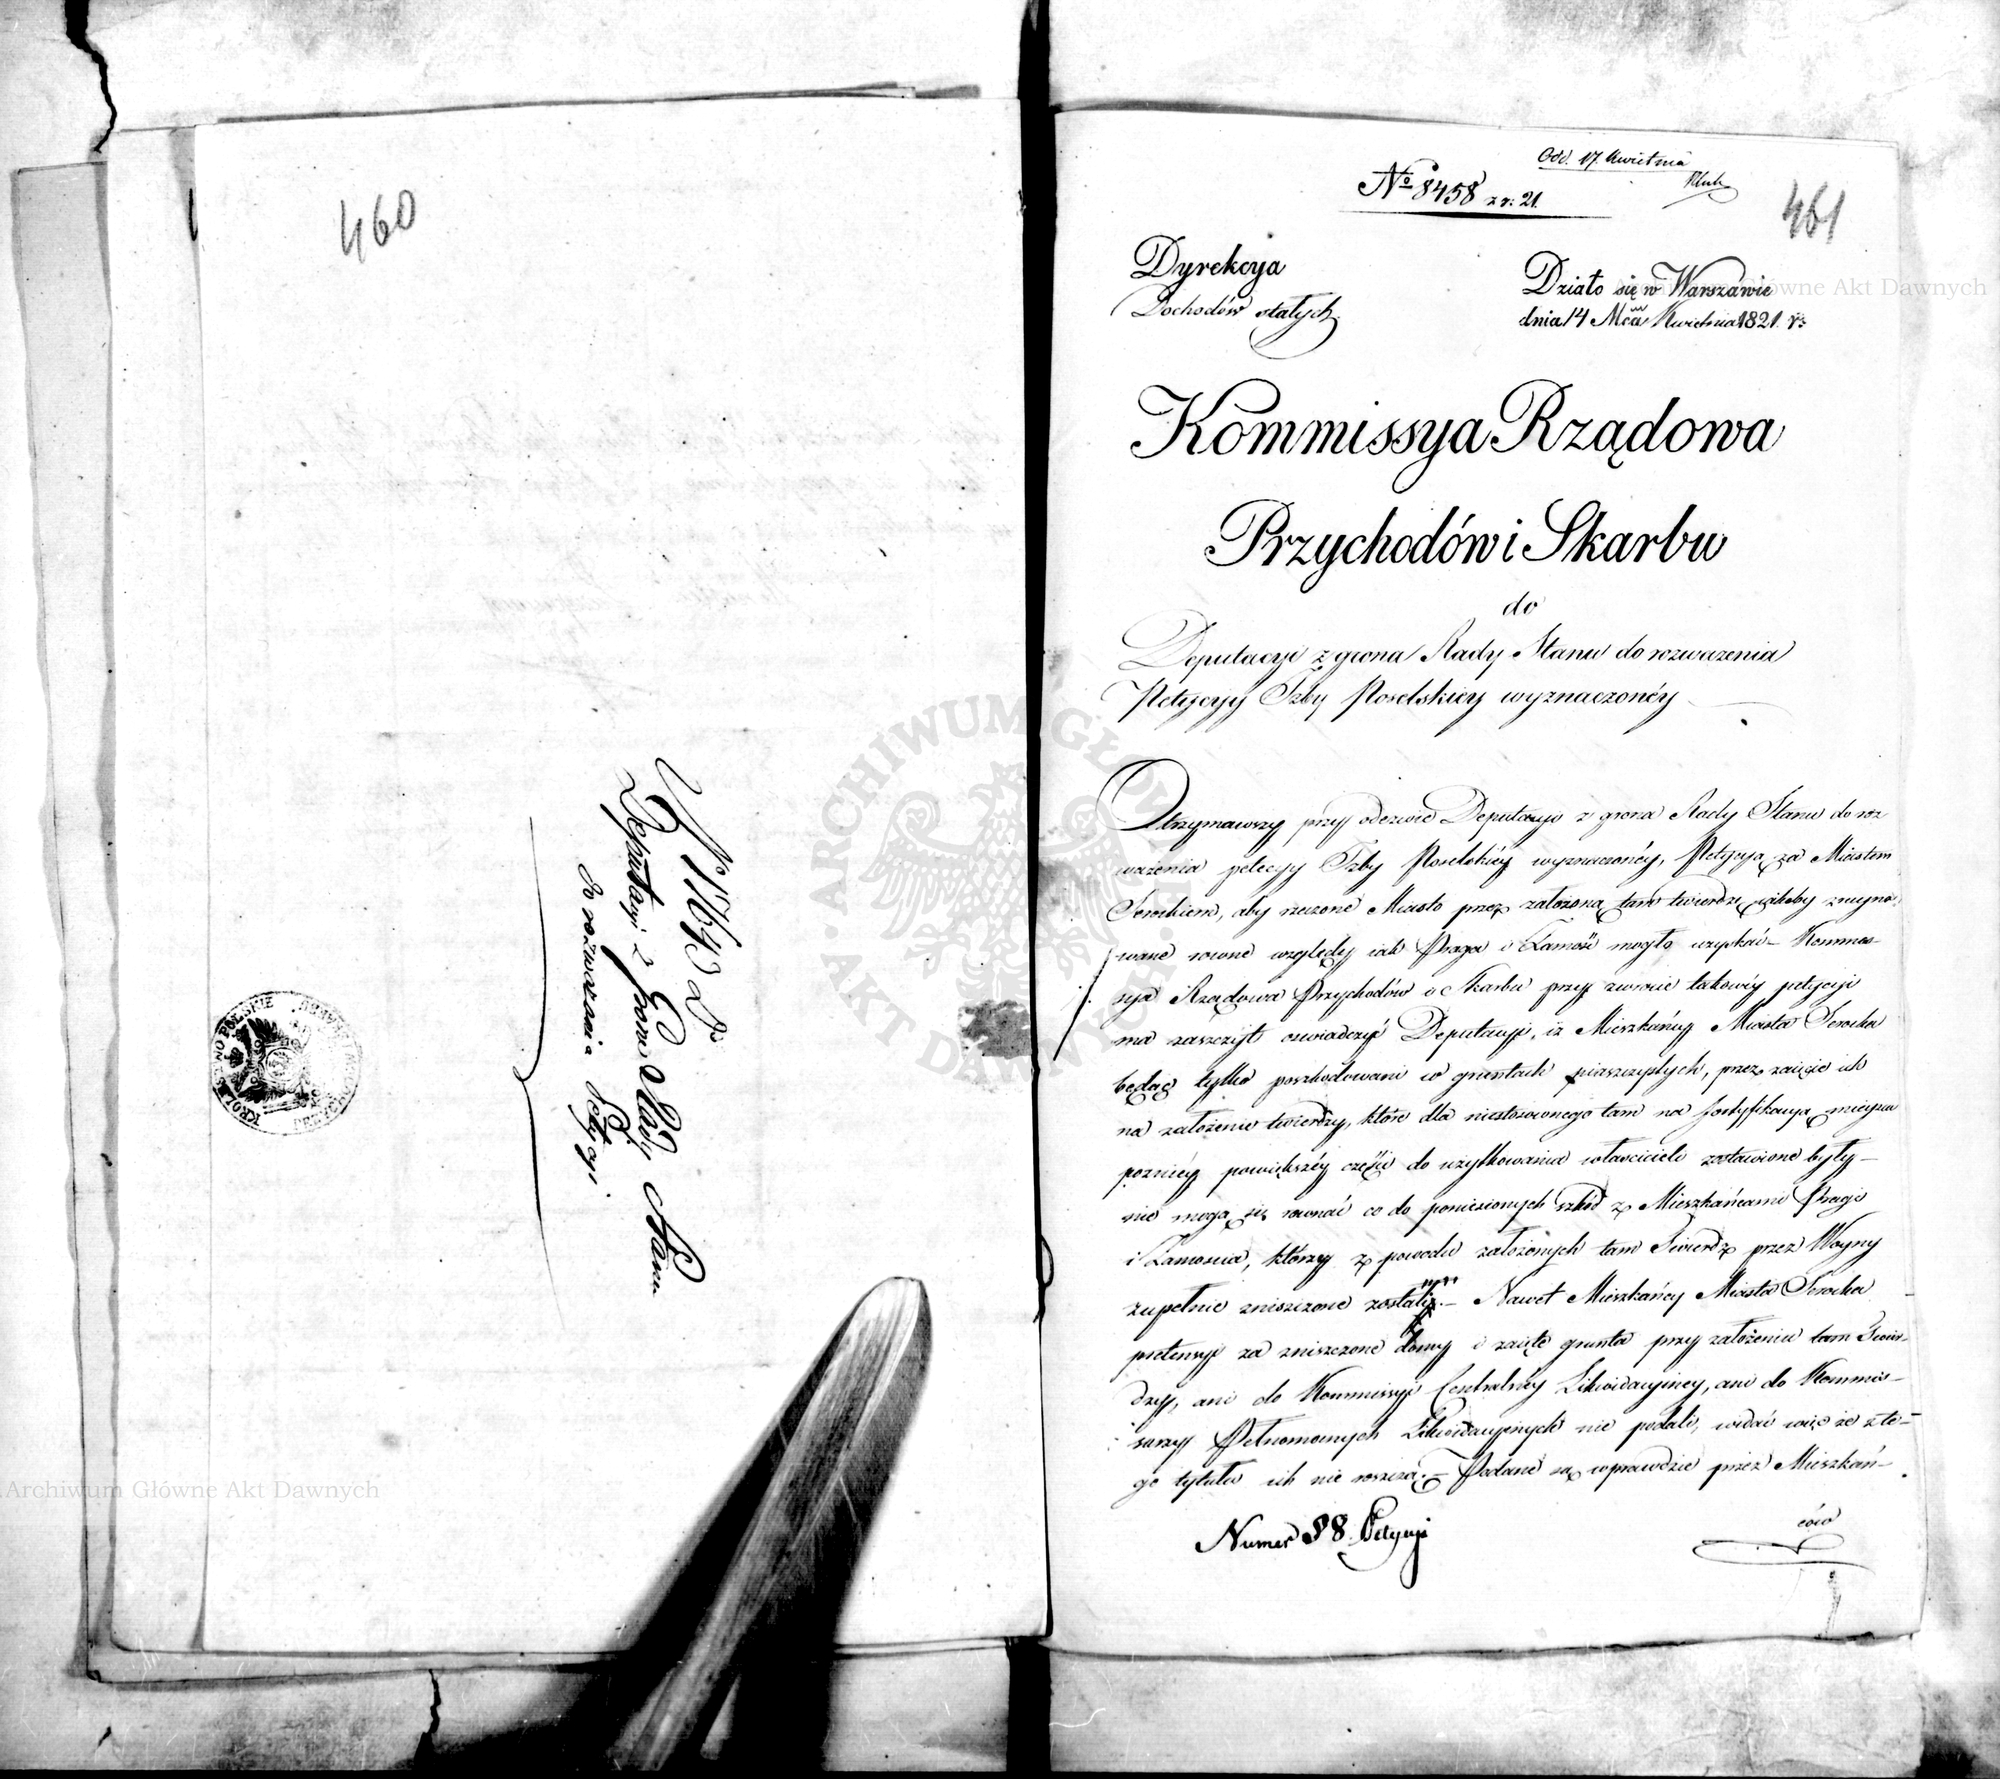 460
N 11643 D
Deputacyi z Grona Rady Stanu
do rozważenia Petycyi
KROLESTWO POLSKIE
Odd. 17. Kwietnia
No 8458 z r: 21.
461
Dyrekcya
Dochodów stałych
Działo się w Warszawie
dnia 14 Mca Kwietnia 1821. r:
Kommissya Rządowa
Przychodów i Skarbu
do
Deputacyi z grona Rady Stanu do rozwazenia
Petycyy Izby Poselskiey wyznaczonéy
Otrzymawszy przy odezwie Deputacyi z grona Rady Stanu do roz
ważenia petycyy Izby Poselskiéy wyznaczonéy, Petycyą za Miastem
Serockiem, aby rzeczone Miasto przez założoną tam twierdzę jakoby zruyno
wane rowne względy iak Praga i Zamość mogło uzyskać – Kommis-
sya Rządowa Przychodów i Skarbu przy zwrocie takowéy petycyi
ma zaszczyt oswiadczyć Deputacyi, iż Mieszkańcy Miasta Serocka
będąc tylko poszkodowani w gruntach piaszczystych, przez zaięcie ich
na założenie twierdzy, które dla niestosownego tam na fortyfikacyą mieysca
pozniéy powiększéy części do użytkowania właścicieli zostawione były –
nie mogą się rownać co do poniesionych szkód z Mieszkańcami Pragi
i Zamościa, którzy z powodu założonych tam Twierdz przez Woyny
zupełnie zniszczone zostali – Nawet Mieszkańcy Miasta Serocka
pretensyi za zniszczone domy i zaięte grunta przy założeniu tam Twier-
dzy, ani do Kommissyi Centralnéy Likwidacyiney, ani do Kommis-
sarzy Pełnomocnych Likwidacyinych nie podali, widać więc że z te-
go tytułu ich nie roszczą. – Podane są wprawdzie przez Mieszkań-
ców
Numer 88. Petycyi
Archiwum Główne Akt Dawnych
ARCHIWUM GŁÓWNE AKT DAWNYCH